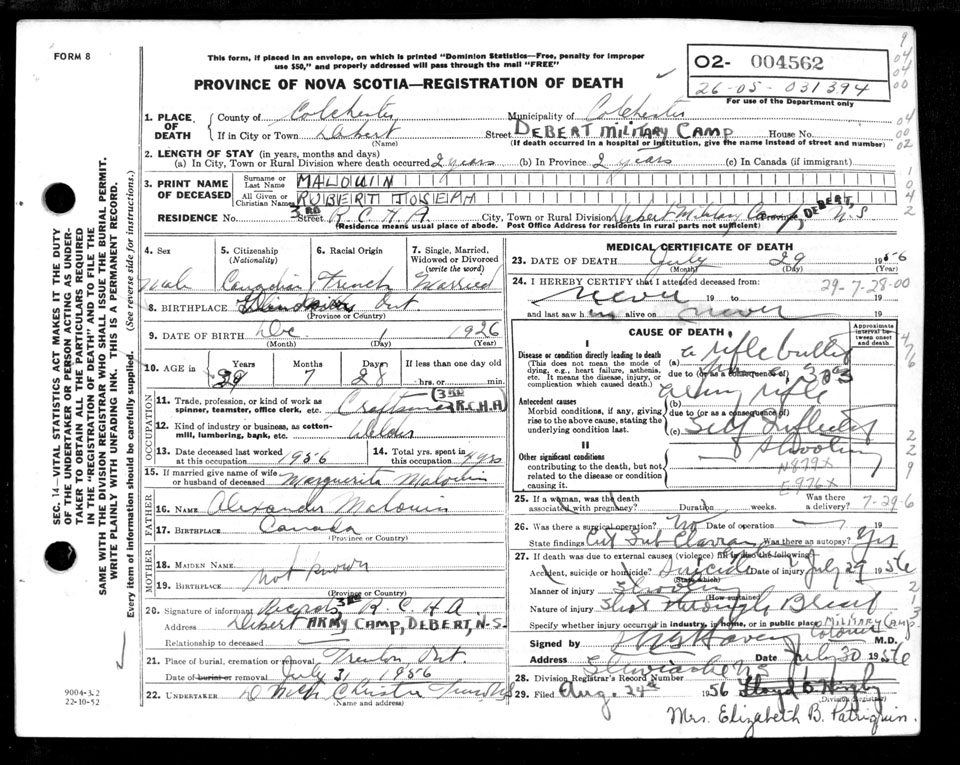 FORM 8
This form, if placed in an envelope, on which is printed "Dominion Statistics—Free, penalty for improper
use $50," and properly addressed will pass through the mail "FREE"
PROVINCE OF NOVA SCOTIA—REGISTRATION OF DEATH
02- 004562
26-05-031394
For use of the Department only
1. PLACE OF DEATH
County of Colchester Municipality of Colchester
If in City or Town Debert Street DEBERT MILITARY CAMP House No.
(Name) (If death occurred in a hospital or institution, give the name instead of street and number)
2. LENGTH OF STAY (in years, months and days)
(a) In City, Town or Rural Division where death occurred 2 years (b) In Province 2 years (c) In Canada (if immigrant)
3. PRINT NAME OF DECEASED
Surname or Last Name MALOUIN
All Given or Christian Names ROBERT JOSEPH
RESIDENCE No. Street 3RD R.C.H.A. City, Town or Rural Division Debert Military Camp Province DEBERT, N.S
(Residence means usual place of abode. Post Office Address for residents in rural parts not sufficient)
4. Sex male
5. Citizenship (Nationality) Canadian
6. Racial Origin French
7. Single, Married, Widowed or Divorced (write the word) Married
8. BIRTHPLACE Ont
(Province or Country)
9. DATE OF BIRTH Dec 1 1926
(Month) (Day) (Year)
10. AGE in Years 29 Months 7 Days 28 If less than one day old hrs. or min.
OCCUPATION
11. Trade, profession, or kind of work as spinner, teamster, office clerk, etc. Craftsman 3RD R.C.H.A
12. Kind of industry or business, as cotton-mill, lumbering, bank, etc. Welder
13. Date deceased last worked at this occupation 1956
14. Total yrs. spent in this occupation 4 yrs
15. If married give name of wife or husband of deceased Marguerita Malouin
FATHER
16. NAME Alexander Malouin
17. BIRTHPLACE Canada
(Province or Country)
MOTHER
18. MAIDEN NAME
19. BIRTHPLACE not known
(Province or Country)
20. Signature of informant Records 3RD R.C.H.A.
Address Debert ARMY CAMP, DEBERT, N.S.
Relationship to deceased
21. Place of burial, cremation or removal Trenton, Ont.
Date of burial or removal July 31 1956
22. UNDERTAKER
(Name and address)
MEDICAL CERTIFICATE OF DEATH
23. DATE OF DEATH July 29 1956
(Month) (Day) (Year)
24. I HEREBY CERTIFY that I attended deceased from: 29-7-28-00
never 19 to 19
and last saw h im alive on never 19
CAUSE OF DEATH
Approximate interval between onset and death
I
Disease or condition directly leading to death
(This does not mean the mode of dying, e.g., heart failure, asthenia, etc. It means the disease, injury, or complication which caused death.)
(a) a rifle bullet
due to (or as a consequence of) 303
Antecedent causes
Morbid conditions, if any, giving rise to the above cause, stating the underlying condition last.
(b) army rifle
due to (or as a consequence of)
(c) Self Inflicted
II
Other significant conditions
contributing to the death, but not related to the disease or condition causing it.
Shooting
N879X
E976X
25. If a woman, was the death associated with pregnancy? Duration weeks. Was there a delivery? 7-29-6
26. Was there a surgical operation? No Date of operation 19
State findings Was there an autopsy? Yes
27. If death was due to external causes (violence) fill in also the following:
Accident, suicide or homicide? Suicide Date of injury July 29 1956
(State which)
Manner of injury Shooting
(How sustained)
Nature of injury Shot through
Specify whether injury occurred in industry, in home, or in public place MILITARY CAMP
Signed by Coroner M.D.
Address Stewiacke N.S. Date July 30 1956
28. Division Registrar's Record Number
29. Filed Aug. 24th 1956 Lloyd
Division Registrar
Mrs. Elizabeth B. Patriquin.
SEC. 14—VITAL STATISTICS ACT MAKES IT THE DUTY
OF THE UNDERTAKER OR PERSON ACTING AS UNDER-
TAKER TO OBTAIN ALL THE PARTICULARS REQUIRED
IN THE "REGISTRATION OF DEATH" AND TO FILE THE
SAME WITH THE DIVISION REGISTRAR WHO SHALL ISSUE THE BURIAL PERMIT.
WRITE PLAINLY WITH UNFADING INK. THIS IS A PERMANENT RECORD.
Every item of information should be carefully supplied. (See reverse side for instructions.)
9004-3.2
22-10-52